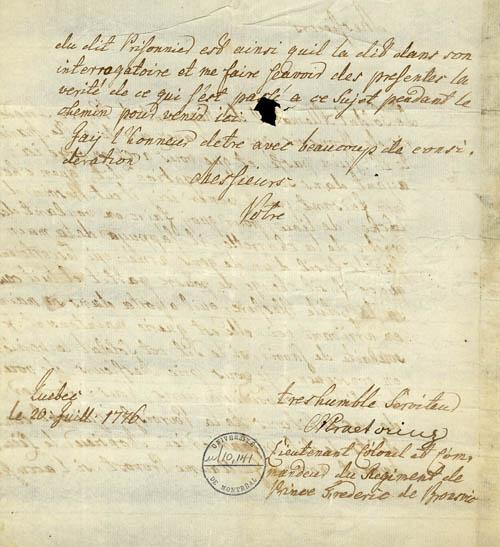 du dit Prisonnied est ainsi quil la did dans son
interrogatoire et me faire sçavoir des presentes la
verité de ce qui s'est passé a ce sujet pendant le
chemin pour venir ici.
Jay l'honneur detre avec beaucoup de consi.
deration
Messieurs
Votre
Quebec
le 20 Juill. 1776.
treshumble Serviteud
Praetorius
Lieutenant Colonel et Com,
mandeur du Regiment de
Prince Frederic de
UNIVERSITÉ
10,141
DE MONTRÉAL